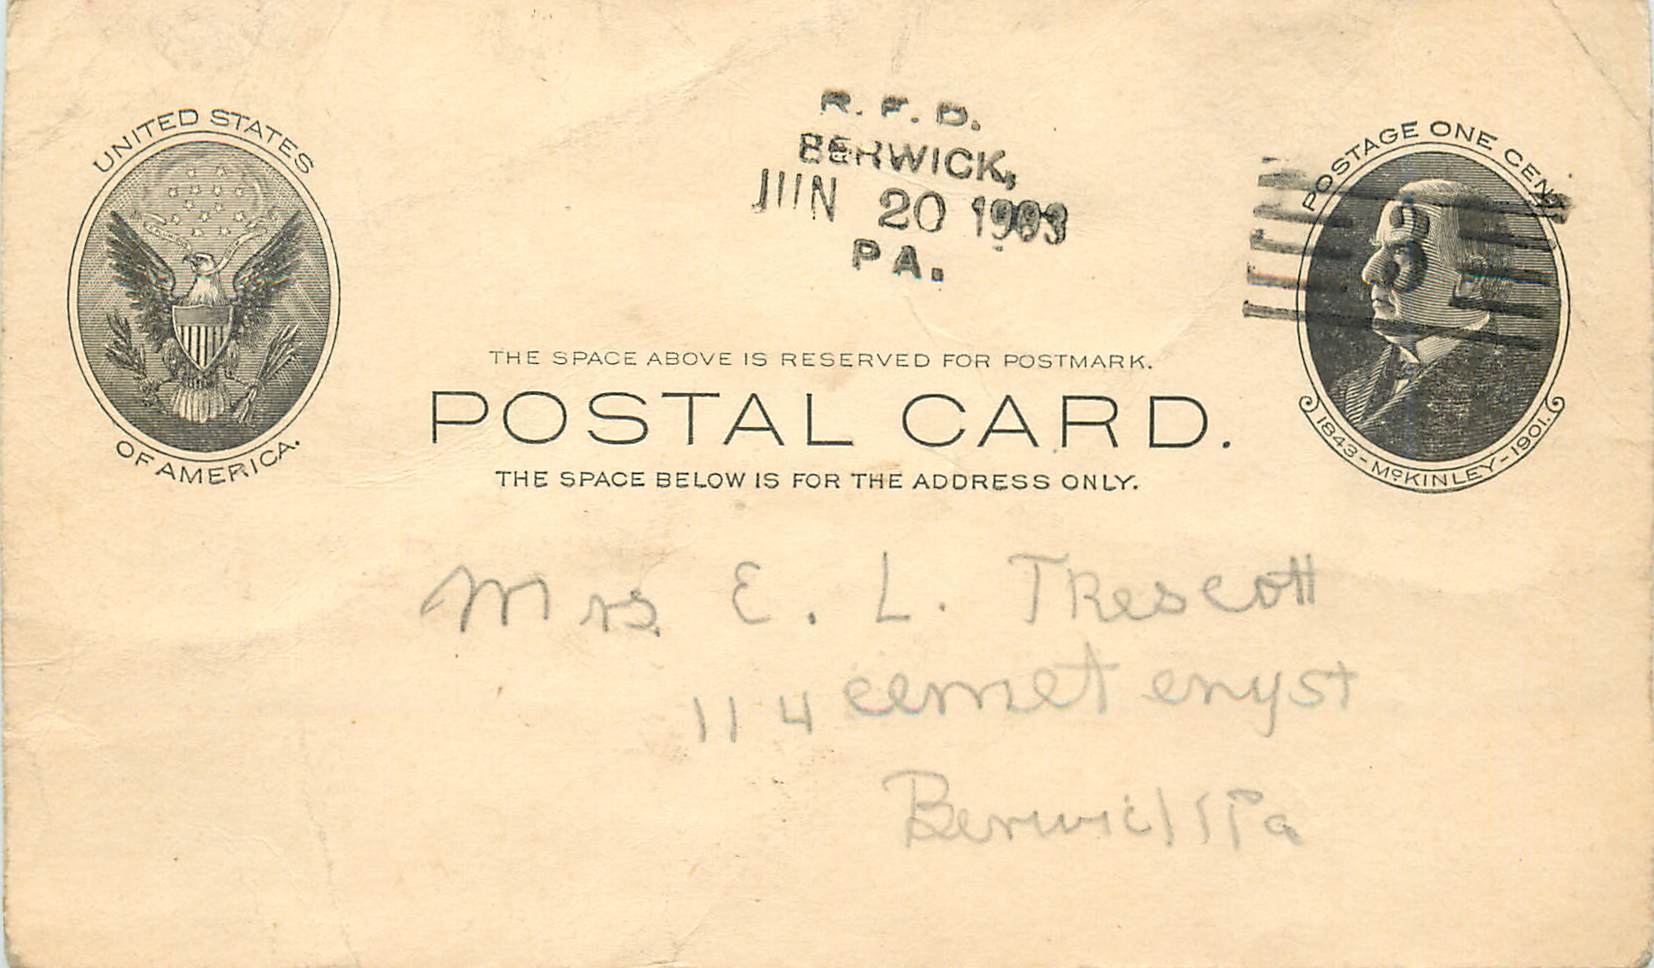 UNITED STATES
OF AMERICA.
R. F. D.
BERWICK,
JUN 20 1903
PA.
POSTAGE ONE CENT
1843-McKINLEY-1901.
THE SPACE ABOVE IS RESERVED FOR POSTMARK.
POSTAL CARD.
THE SPACE BELOW IS FOR THE ADDRESS ONLY.
Mrs. E. L. Trescott
114 cemetery st
Berwick Pa